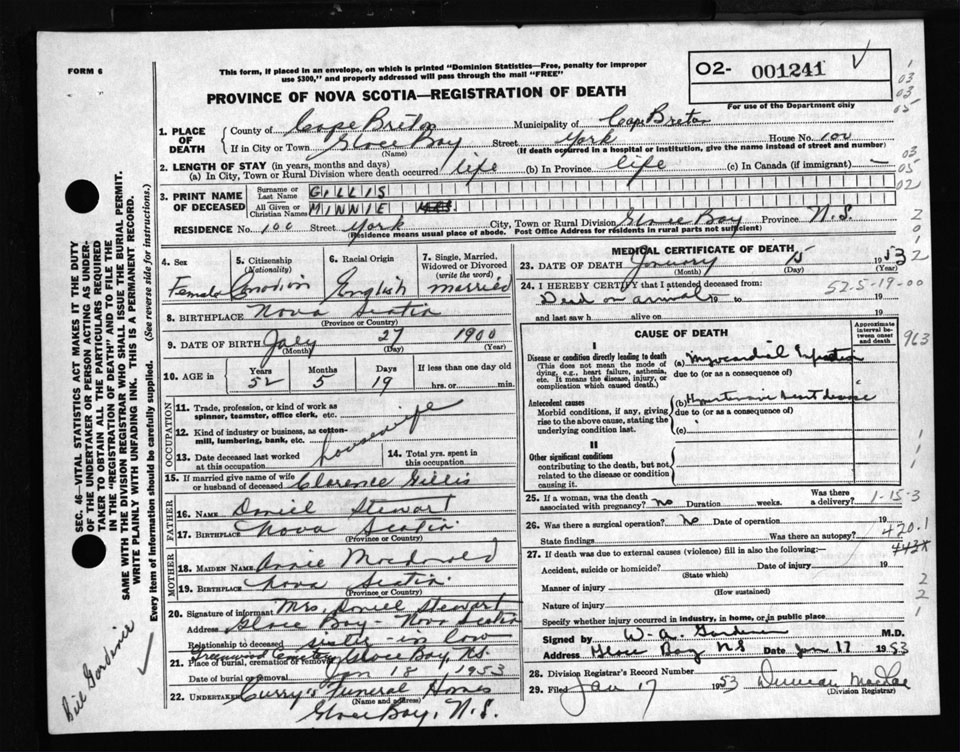 FORM 6
This form, if placed in an envelope, on which is printed "Dominion Statistics—Free, penalty for improper
use $300," and properly addressed will pass through the mail "FREE"
O2- 001241
For use of the Department only
PROVINCE OF NOVA SCOTIA—REGISTRATION OF DEATH
1. PLACE OF DEATH
County of Cape Breton Municipality of Cape Breton
If in City or Town Glace Bay Street York House No. 100
(Name) (If death occurred in a hospital or institution, give the name instead of street and number)
2. LENGTH OF STAY (in years, months and days)
(a) In City, Town or Rural Division where death occurred life (b) In Province life (c) In Canada (if immigrant) —
3. PRINT NAME OF DECEASED
Surname or Last Name GILLIS
All Given or Christian Names MINNIE
RESIDENCE No. 100 Street York City, Town or Rural Division Glace Bay Province N.S.
(Residence means usual place of abode. Post Office Address for residents in rural parts not sufficient)
4. Sex Female
5. Citizenship (Nationality) Canadian
6. Racial Origin English
7. Single, Married, Widowed or Divorced (write the word) married
8. BIRTHPLACE Nova Scotia
(Province or Country)
9. DATE OF BIRTH July 27 1900
(Month) (Day) (Year)
10. AGE in Years 52 Months 5 Days 19 If less than one day old
hrs. or min.
OCCUPATION
11. Trade, profession, or kind of work as
spinner, teamster, office clerk, etc.
12. Kind of industry or business, as cotton-
mill, lumbering, bank, etc. housewife
13. Date deceased last worked
at this occupation
14. Total yrs. spent in
this occupation
15. If married give name of wife
or husband of deceased Clarence Gillis
FATHER
16. Name Daniel Stewart
17. Birthplace Nova Scotia
(Province or Country)
MOTHER
18. MAIDEN NAME Annie Macdonald
19. BIRTHPLACE Nova Scotia
(Province or Country)
20. Signature of informant Mrs. Daniel Stewart
Address Glace Bay - Nova Scotia
Relationship to deceased sister-in law
Greenwood Cemetery
21. Place of burial, cremation or removal Glace Bay, N.S.
Date of burial or removal Jan 18 1953
22. UNDERTAKER Curry's Funeral Homes
(Name and address)
Glace Bay, N.S.
MEDICAL CERTIFICATE OF DEATH
23. DATE OF DEATH January 15 1953
(Month) (Day) (Year)
24. I HEREBY CERTIFY that I attended deceased from:
52.5-19-00
Dead on arrival 19 to 19
and last saw h alive on 19
CAUSE OF DEATH
Approximate interval between onset and death
963
I
Disease or condition directly leading to death
(This does not mean the mode of
dying, e.g., heart failure, asthenia,
etc. It means the disease, injury, or
complication which caused death.)
(a) Myocardial
due to (or as a consequence of)
Antecedent causes
Morbid conditions, if any, giving
rise to the above cause, stating the
underlying condition last.
(b) heart disease
due to (or as a consequence of)
(c)
II
Other significant conditions
contributing to the death, but not
related to the disease or condition
causing it.
25. If a woman, was the death
associated with pregnancy? no Duration weeks. Was there a delivery?
1-15-3
26. Was there a surgical operation? No Date of operation 19
State findings Was there an autopsy?
420.1
443X
27. If death was due to external causes (violence) fill in also the following:—
Accident, suicide or homicide? Date of injury 19
(State which)
Manner of injury
(How sustained)
Nature of injury
Specify whether injury occurred in industry, in home, or in public place
Signed by W. A. M.D.
Address Glace Bay NS Date Jan 17 1953
28. Division Registrar's Record Number
29. Filed Jan 17 1953 Duncan
(Division Registrar)
SEC. 46—VITAL STATISTICS ACT MAKES IT THE DUTY
OF THE UNDERTAKER OR PERSON ACTING AS UNDER-
TAKER TO OBTAIN ALL THE PARTICULARS REQUIRED
IN THE "REGISTRATION OF DEATH" AND TO FILE THE
SAME WITH THE DIVISION REGISTRAR WHO SHALL ISSUE THE BURIAL PERMIT.
WRITE PLAINLY WITH UNFADING INK. THIS IS A PERMANENT RECORD.
Every item of information should be carefully supplied. (See reverse side for instructions.)